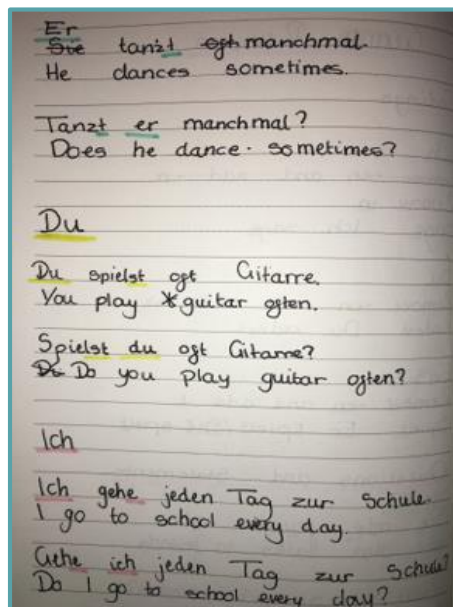 Er
Sie tanzt oft manchmal.
He dances sometimes.
Tanzt er manchmal?
Does he dance. sometimes?
Du
Du spielst oft Gitarre.
You play * guitar often.
Spielst du oft Gitarre?
Do Do you play guitar often?
Ich
Ich gehe jeden Tag zur Schule.
I go to school every day.
Gehe ich jeden Tag zur Schule?
Do I go to school every day?